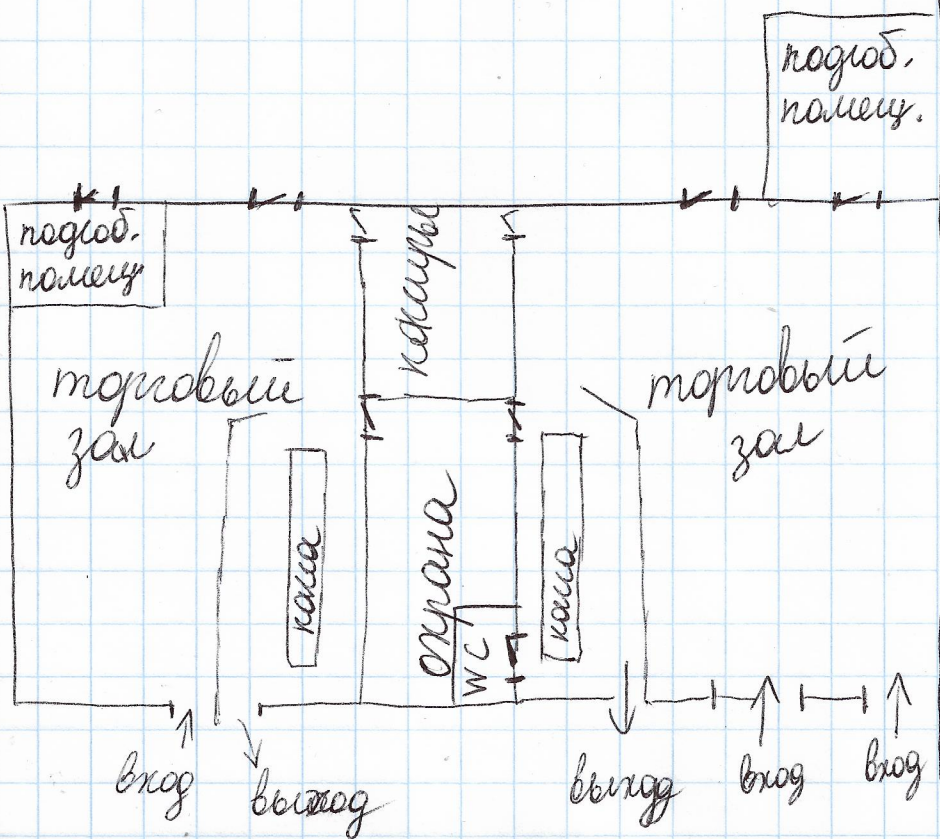 подсоб.
помещ.
подсоб.
помещ.
кассиры
торговый
зал
торговый
зал
касса
охрана
WC
касса
вход
выход
выход
вход
вход